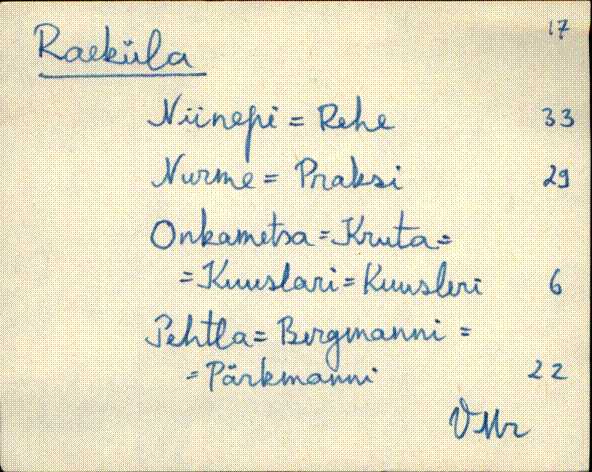 17
Raeküla
Niinepi = Rehe 33
Nurme = Praksi 29
Onkametsa = Kruta =
= Kuuslari = Kuusleri 6
Pehtla = Bergmanni =
= Pärkmanni 22
VMr